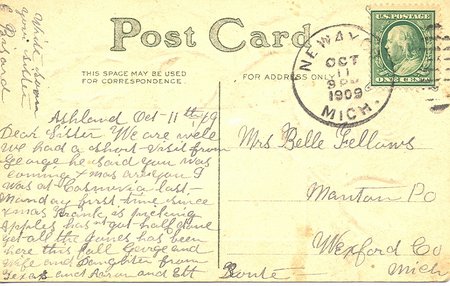 Post Card
THIS SPACE MAY BE USED
FOR CORRESPONDENCE.
FOR ADDRESS ONLY
NEWAYGO
OCT
11
1909
MICH.
U.S. POSTAGE
ONE CENT
Write soon
your sister
E
Ashland Oct-11th-09
Dear Sister We are well
we had a short visit from
George he said you was
coming xmas are you I
was at Casnovia last-
Monday first time since
xmas Frank is picking
Apples has got half done
yet all the has been
here this fall George and
wife and Daughter from
Texas and Aaron and Ett
Mrs Belle Fellows
Manton Po
Wexford Co
Mich
Route